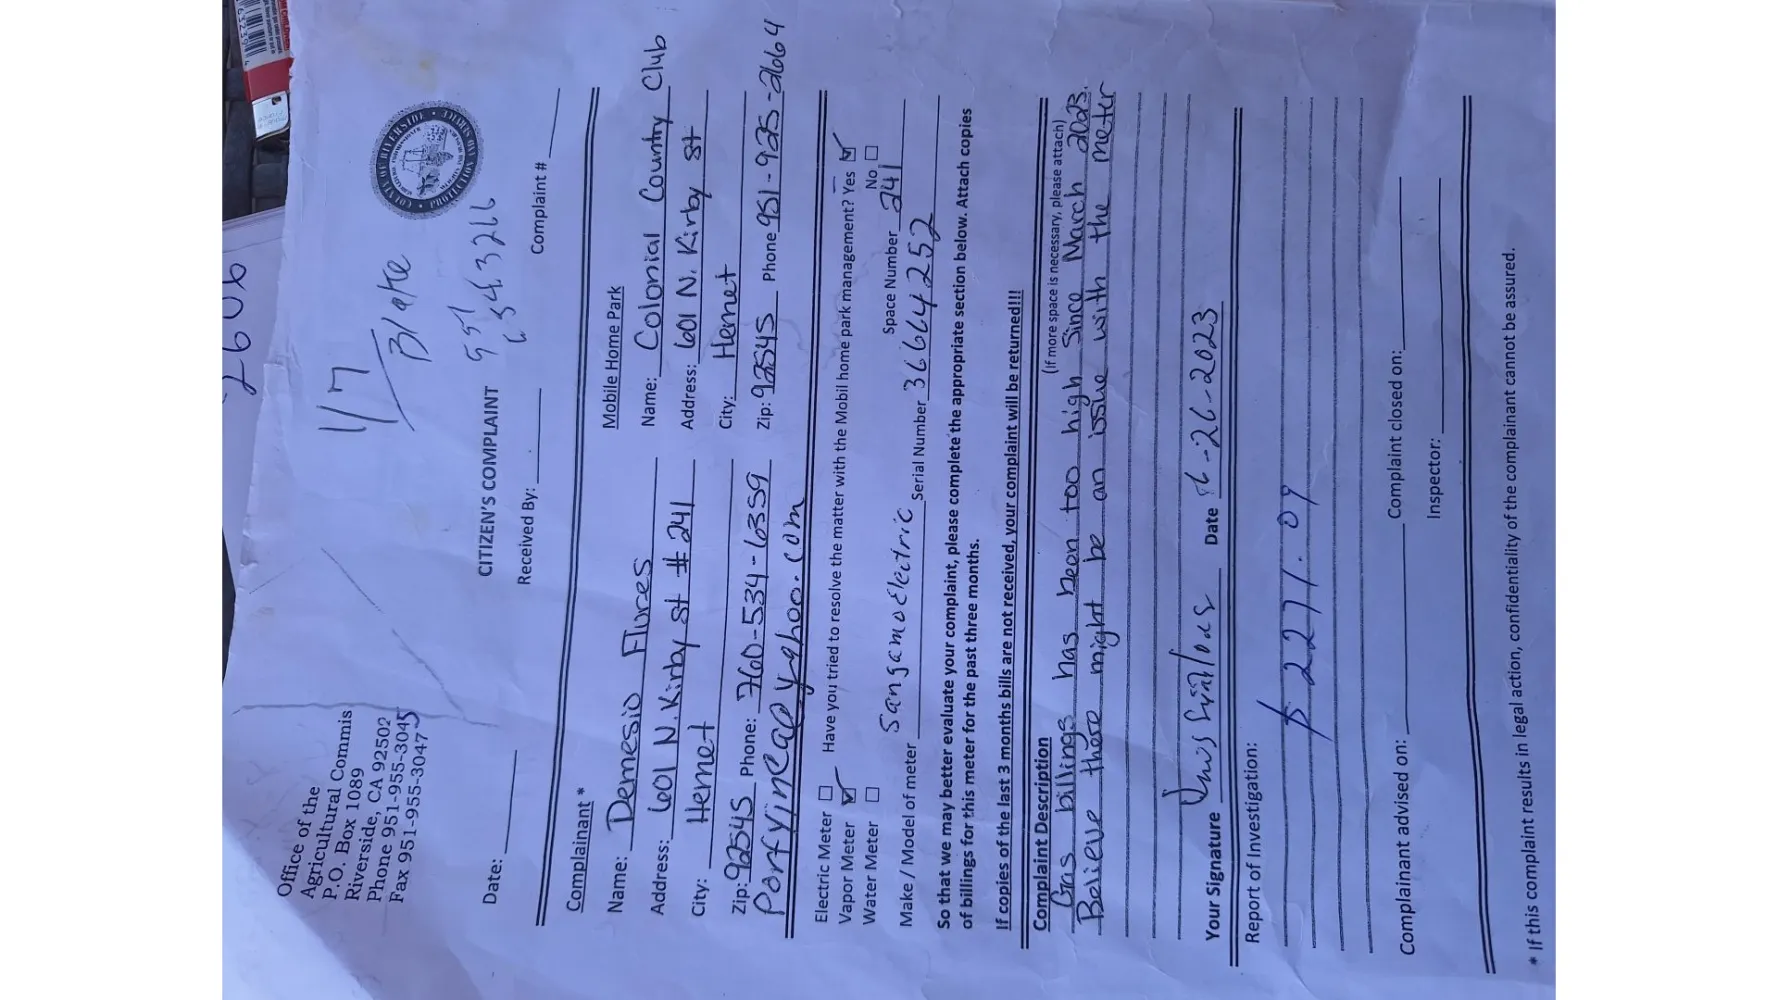 2606
1/7
Blake
951
6343266
Office of the
Agricultural Commis
P.O. Box 1089
Riverside, CA 92502
Phone 951-955-3045
Fax 951-955-3047
COUNTY OF RIVERSIDE
CITIZEN'S COMPLAINT
Date: Received By: Complaint #
Complainant * Mobile Home Park
Name: Demesio Flures Name: Colonial Country Club
Address: 601 N. Kirby st # 241 Address: 601 N. Kirby st
City: Hemet City: Hemet
Zip: 92545 Phone: 760-534-6359 Zip: 92545 Phone 951-925-2664
Electric Meter Have you tried to resolve the matter with the Mobil home park management? Yes
Vapor Meter No
Water Meter Space Number 241
Make / Model of meter Sangamo Electric Serial Number 36664252
So that we may better evaluate your complaint, please complete the appropriate section below. Attach copies
of billings for this meter for the past three months.
If copies of the last 3 months bills are not received, your complaint will be returned!!!
Complaint Description (If more space is necessary, please attach)
Gas billings has been too high Since March 2023.
Believe there might be an issue with the meter
Your Signature Date 6-26-2023
Report of Investigation:
$ 2271.09
Complainant advised on: Complaint closed on:
Inspector:
* If this complaint results in legal action, confidentiality of the complainant cannot be assured.